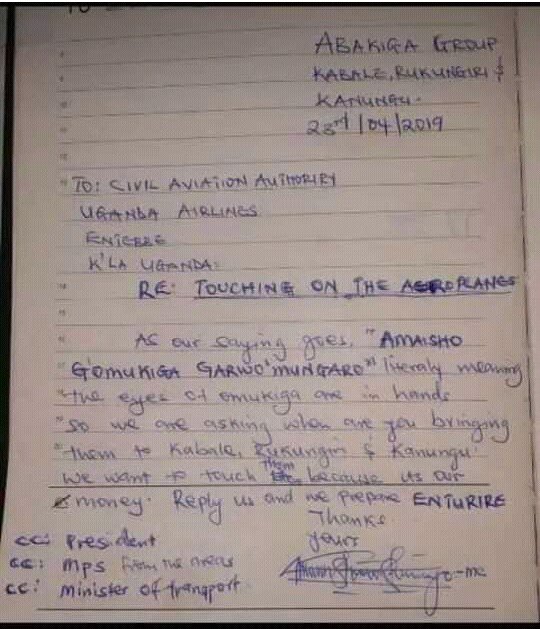 ABAKIGA GROUP
KABALE, RUKUNGIRI &
KANUNGU.
23rd/04/2019
TO: CIVIL AVIATION AUTHORITY
UGANDA AIRLINES
ENTEBBE
K'LA UGANDA:
RE: TOUCHING ON THE AEROPLANES
As our saying goes, "AMAISHO
G'OMUKIGA GARWO'MUNGARO" literaly meaning
"the eyes of omukiga are in hands
"So we are asking when are you bringing
"them to Kabale, Rukungiri & Kanungu.
We want to touch them because its our
money. Reply us and we prepare ENTURIRE
Thanks.
yours
cc: President
cc: MPs from the areas
cc: minister of transport.
-me